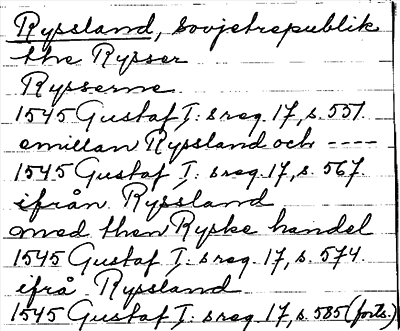 Ryssland, Sovjetrepublik
the Rysser
Rysserne
1545 Gustaf I: s reg. 17, s. 551.
emillan Ryssland och ----
1545 Gustaf I: s reg. 17, s. 567.
ifrån Ryssland
med then Ryske handel
1545 Gustaf I: s reg. 17, s. 574.
ifrå Ryssland
1545 Gustaf I: s reg. 17, s. 585 (forts.)